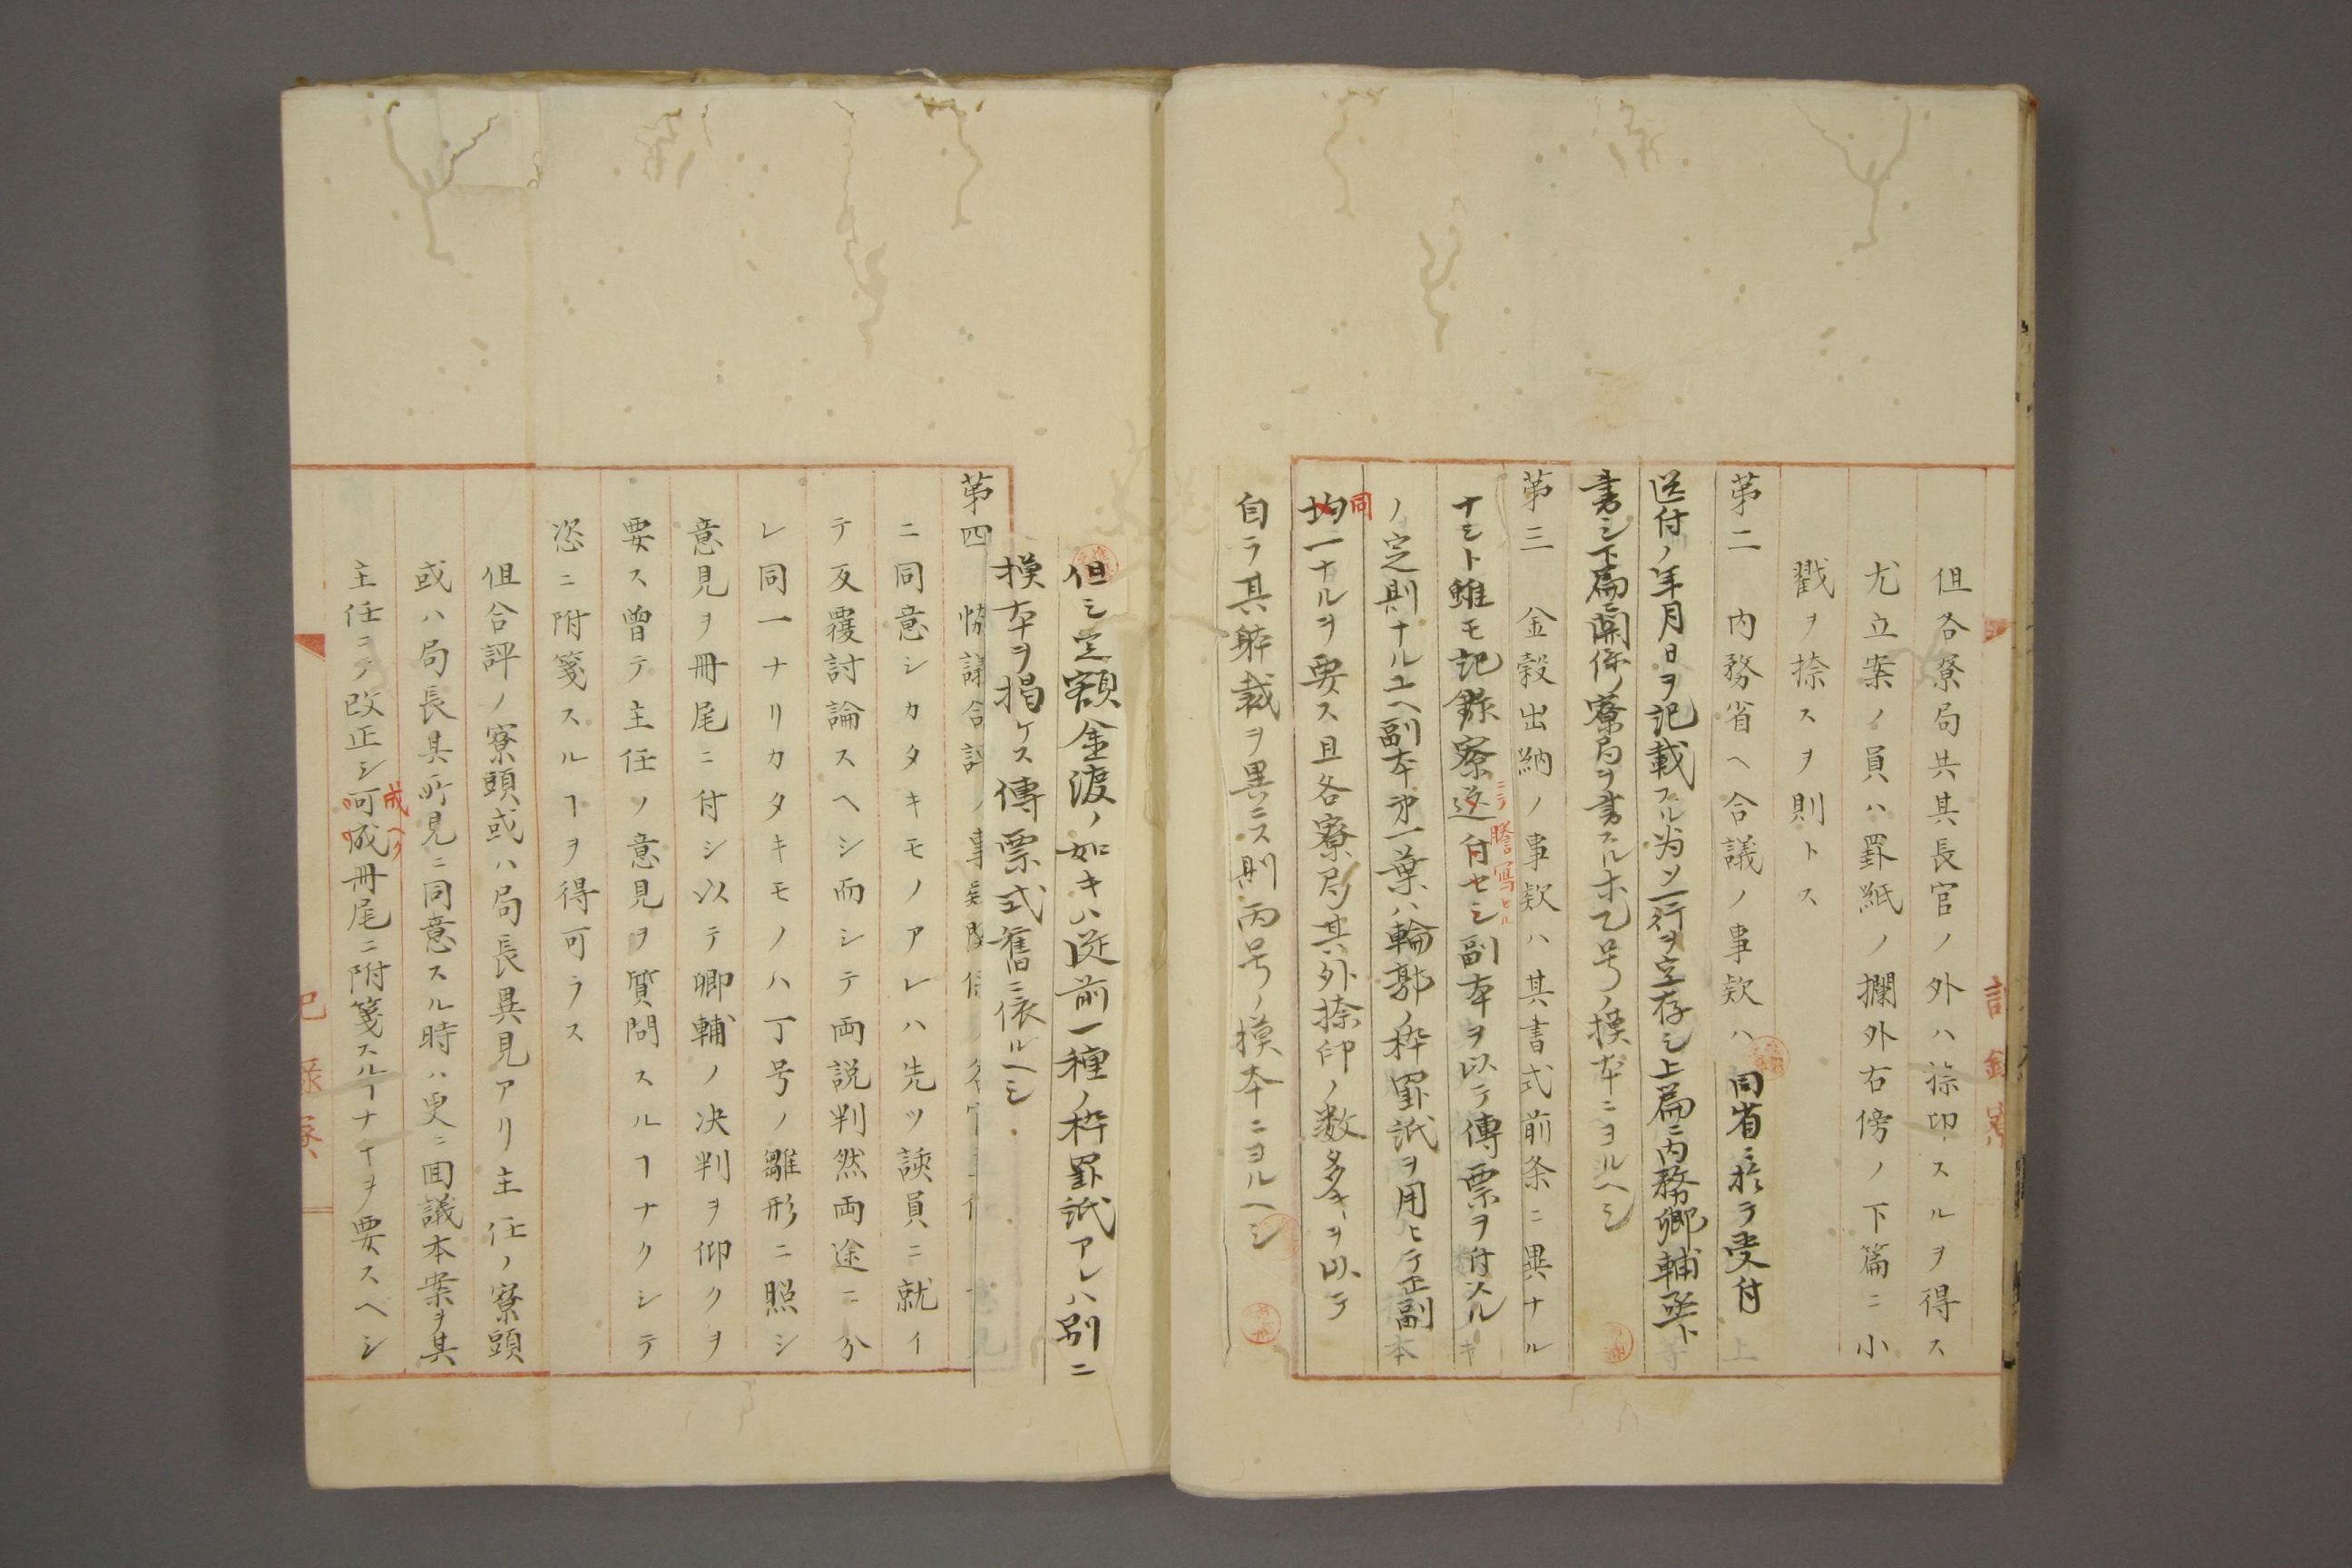 但各寮局共其長官ノ外ハ捺印スルヲ得ス
尤立案ノ員ハ罫紙ノ欄外右傍ノ下篇ニ小
戳ヲ捺スヲ則トス
第二　内務省ヘ合議ノ事欵ハ同省ニ於テ受付
送付ノ年月日ヲ記載スル為メ一行ヲ空存シ上篇ニ内務卿輔丞ト
書シ下篇ニ関係寮局ヲ書スル亦乙号ノ摸本ニヨルヘシ
第三　金穀出納ノ事欵ハ其書式前条ニ異ナル
ナシト雖モ記録寮送付セシ副本ヲ以テ傳票ヲ付スル
ニテ謄寫セル
ノ定則ナルユヘ副本第一葉ハ輪郭ノ枠罫紙ヲ用ヒテ正副
均一ナルヲ要ス且各寮局其外捺印ノ数多キヲ以テ
同
自ラ其躰裁ヲ異ニス則丙号ノ摸本ニヨルヘシ
但シ定額金渡ノ如キハ従前一種ノ枠罫紙アレハ別ニ
摸本ヲ掲ケス傳票式舊ニ依ルヘシ
第四
ニ同意シカタキモノアレハ先ツ該員ニ就イ
テ反覆討論スヘシ而シテ両説判然両途ニ分
レ同一ナリカタキモノハ丁号ノ雛形ニ照シ
意見ヲ冊尾ニ付シ以テ卿輔ノ决判ヲ仰クヲ
要ス曽テ主任ノ意見ヲ質問スルヿナクシテ
恣ニ附箋スルヿヲ得可ラス
但合評ノ寮頭或ハ局長異見アリ主任ノ寮頭
或ハ局長其所見ニ同意スル時ハ更ニ回議本案ヲ其
主任ニテ改正シ可成冊尾ニ附箋スルヿナキヲ要スヘシ
成ヘク